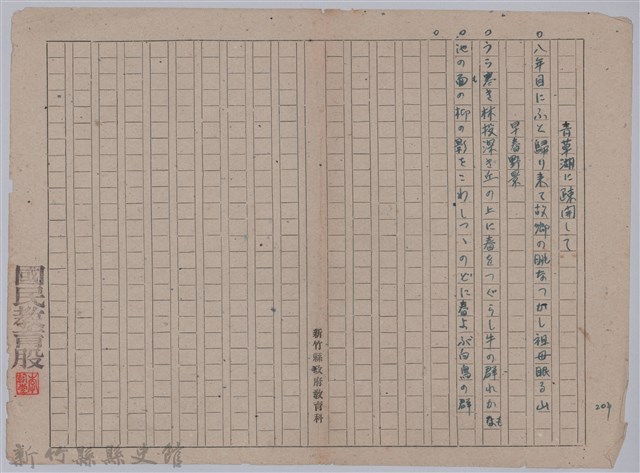 青草湖に疎開して
○八年目にふと歸り来て故郷の眺なつかし祖母眠る山
早春野景
○うら巻き林投深き丘の上に春をつぐらし牛の群れかなも
○池の面の柳の影をこわしつゝのどに春よぶ白鳥の群
○
204
新竹縣政府敎育科
國民教育股
新竹縣縣史館